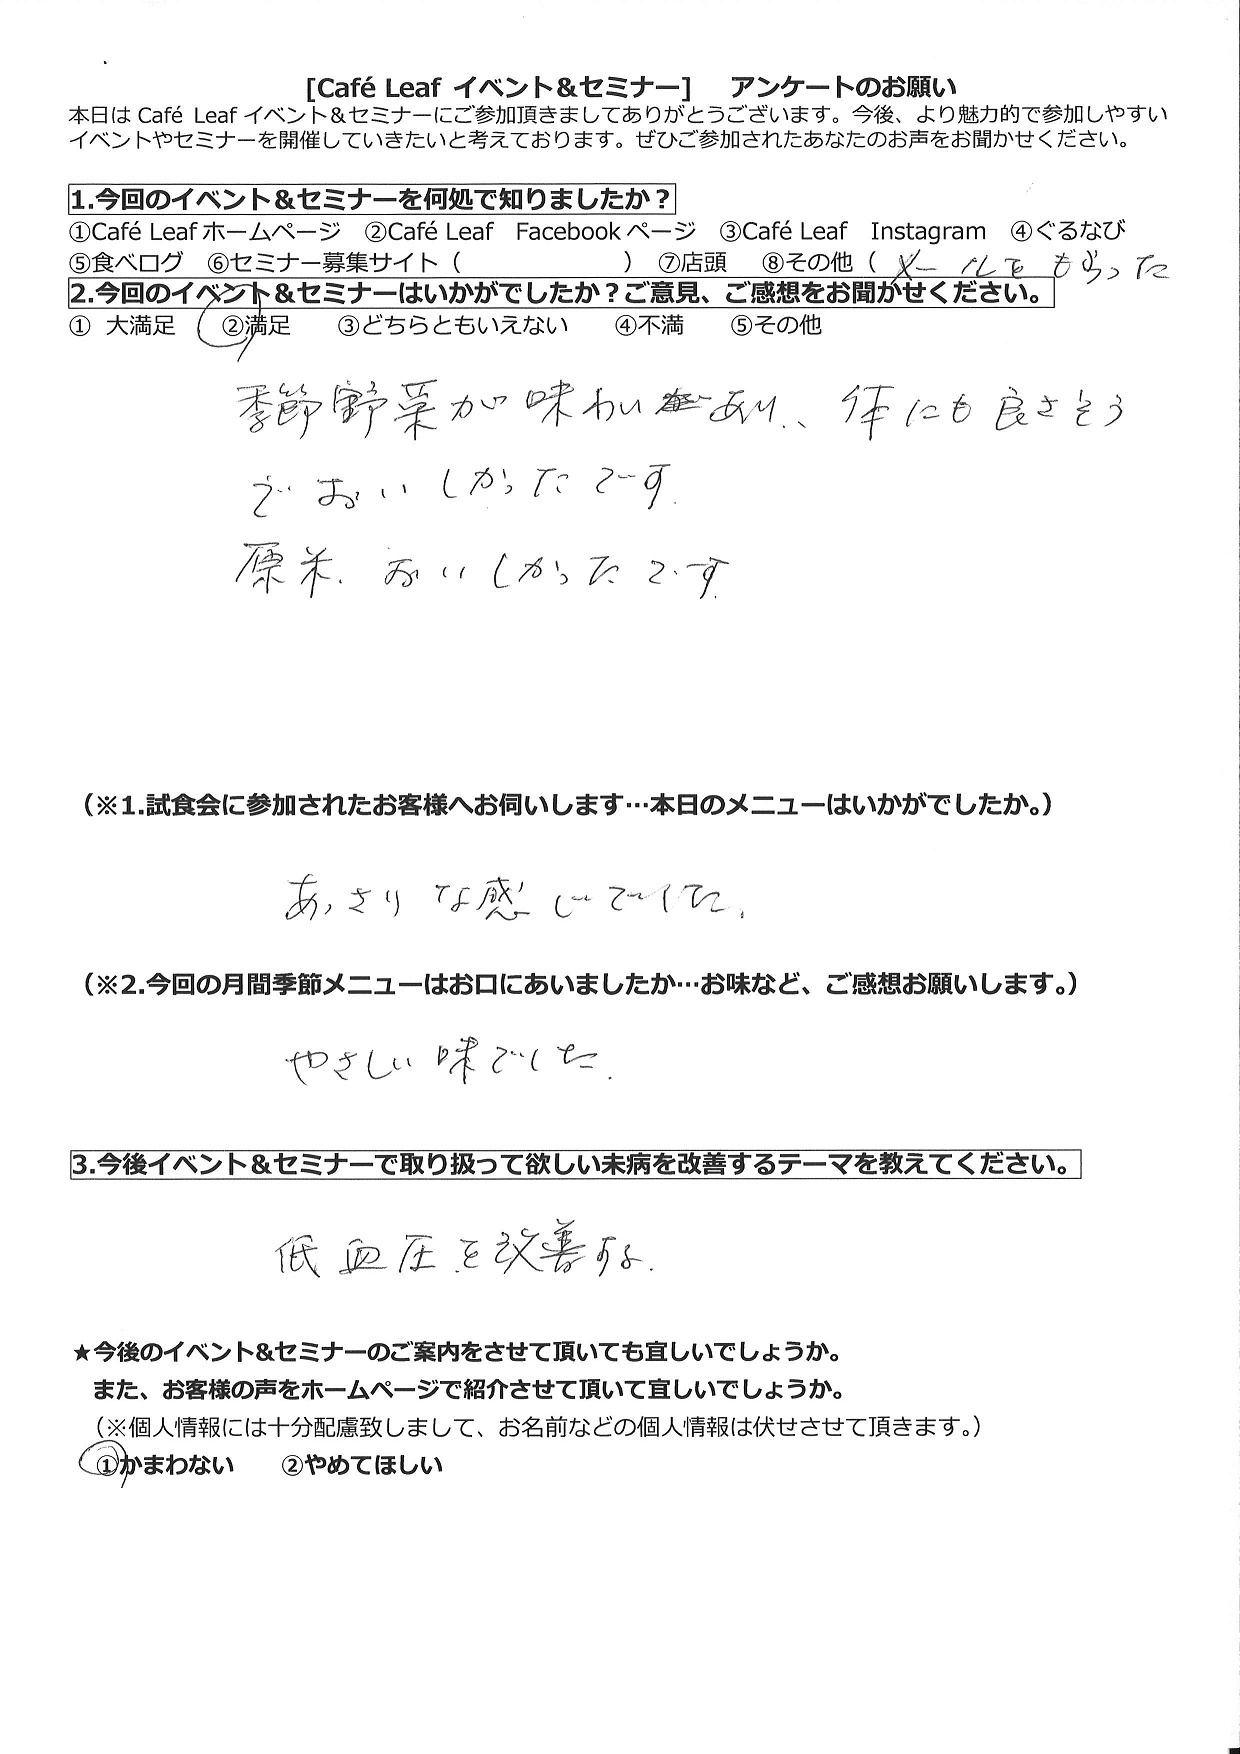 [Café Leaf イベント＆セミナー]　アンケートのお願い
本日は Café Leaf イベント＆セミナーにご参加頂きましてありがとうございます。今後、より魅力的で参加しやすい
イベントやセミナーを開催していきたいと考えております。ぜひご参加されたあなたのお声をお聞かせください。
1.今回のイベント＆セミナーを何処で知りましたか？
①Café Leaf ホームページ　②Café Leaf　Facebook ページ　③Café Leaf　Instagram　④ぐるなび
⑤食べログ　⑥セミナー募集サイト（　　　　　　　）　⑦店頭　⑧その他（ メールをもらった
2.今回のイベント＆セミナーはいかがでしたか？ご意見、ご感想をお聞かせください。
①　大満足　　②満足　　③どちらともいえない　　④不満　　⑤その他
季節野菜が味わいあり、体にも良さそう
でおいしかったです.
原米、おいしかったです.
（※1.試食会に参加されたお客様へお伺いします…本日のメニューはいかがでしたか。）
あっさりな感じでした.
（※2.今回の月間季節メニューはお口にあいましたか…お味など、ご感想お願いします。）
やさしい味でした.
3.今後イベント＆セミナーで取り扱って欲しい未病を改善するテーマを教えてください。
低血圧を改善する.
★今後のイベント&セミナーのご案内をさせて頂いても宜しいでしょうか。
また、お客様の声をホームページで紹介させて頂いて宜しいでしょうか。
（※個人情報には十分配慮致しまして、お名前などの個人情報は伏せさせて頂きます。）
①かまわない　　②やめてほしい